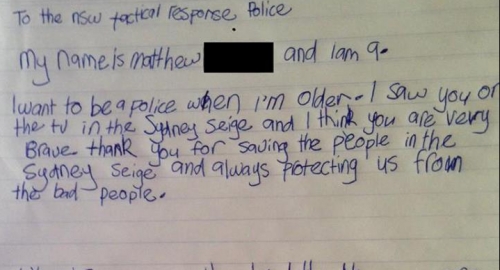 To the nsw tactical response Police
my name is matthew and I am 9.
I want to be a police when I'm older. I saw you on
the tv in the Sydney Seige and I think you are very
Brave. thank you for saving the people in the
Sydney Seige and always protecting us from
the bad people.